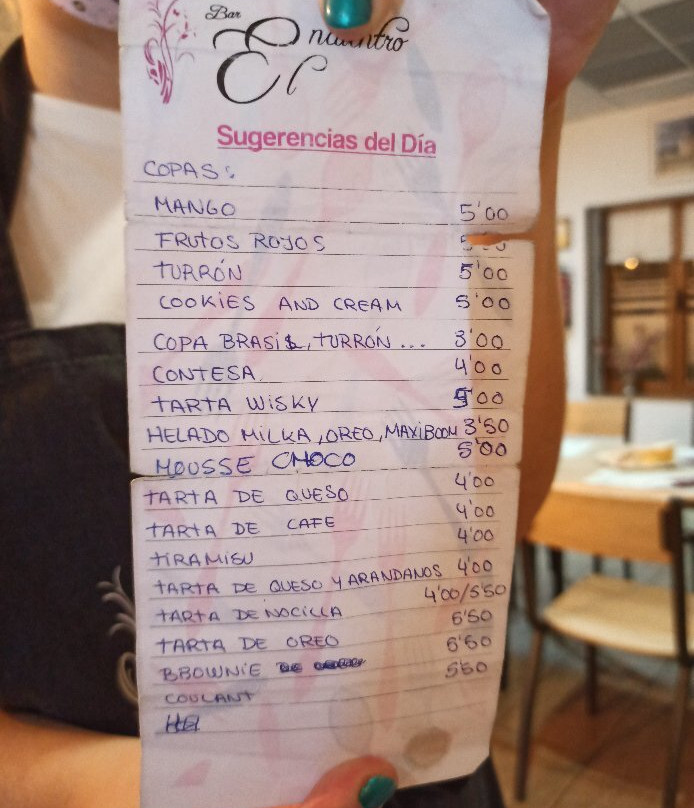 Bar
El Encuentro
Sugerencias del Día
COPAS:
MANGO 5'00
FRUTOS ROJOS
TURRÓN 5'00
COOKIES AND CREAM 5'00
COPA BRASIL, TURRÓN ... 3'00
CONTESA 4'00
TARTA WISKY 5'00
HELADO MILKA, OREO, MAXIBOOM 3'50
MOUSSE CHOCO 5'00
TARTA DE QUESO 4'00
TARTA DE CAFE 4'00
TIRAMISU 4'00
TARTA DE QUESO Y ARANDANOS 4'00
TARTA DE NOCILLA 4'00/5'50
TARTA DE OREO 5'50
BROWNIE DE 5'50
COULANT 5'50